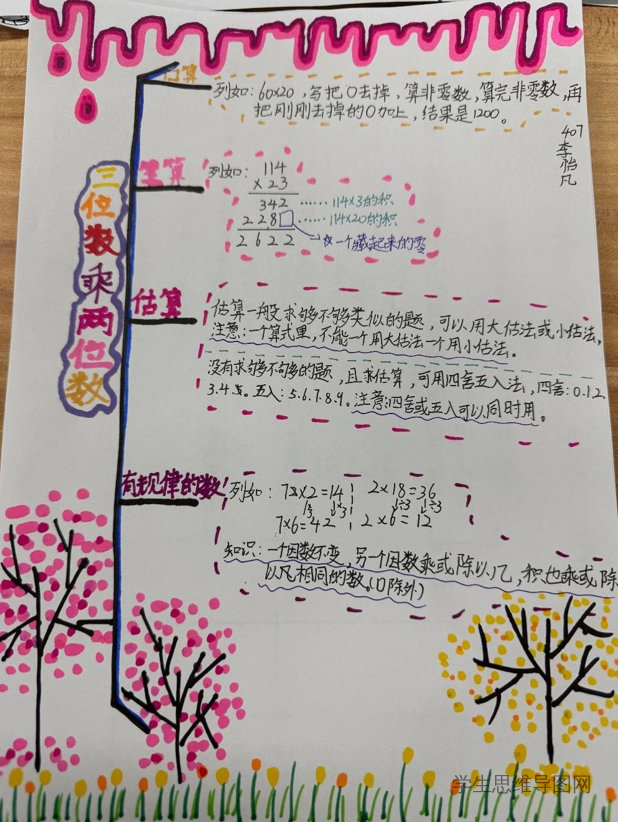 估算
列如：60×20，与把0去掉，算非零数，算完非零数，再
把刚刚去掉的0加上，结果是1200。
407
李怡凡
三位数乘两位数
笔算
列如：
114
×23
342 ……114×3的积
228□ ……114×20的积
2622
→仅一个藏起来的零
估算
估算一般求够不够类似的题，可以用大估法或小估法，
注意：一个算式里，不能一个用大估法一个用小估法。
没有求够不够多的题，且求估算，可用四舍五入法，四舍：0.1.2.
3.4.五入：5.6.7.8.9。注意：四舍或五入可以同时用。
有规律的数
列如：7×2=14 2×18=36
7×6=42 2×6=12
知识：一个因数不变，另一个因数乘或除以几，积也乘或除
以几相同的数。(0除外)
学生思维导图网